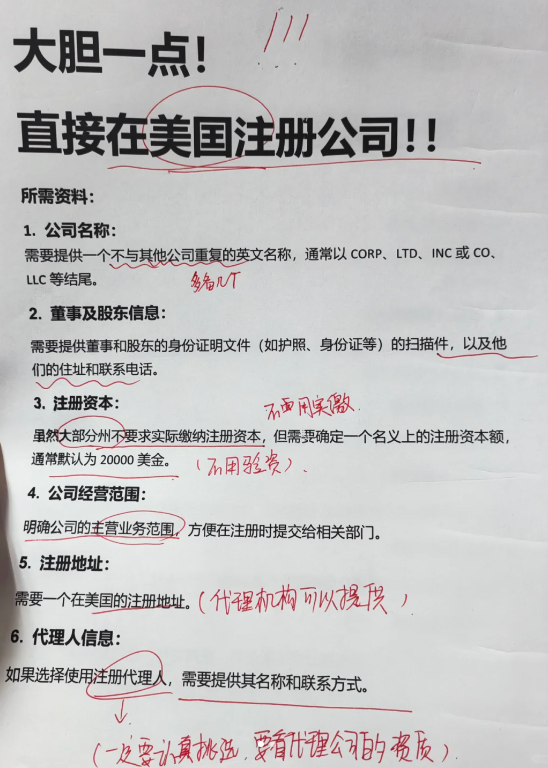 大胆一点!
直接在美国注册公司!!
所需资料:
1. 公司名称:
需要提供一个不与其他公司重复的英文名称，通常以 CORP、LTD、INC 或 CO、
LLC 等结尾。
多备几个
2. 董事及股东信息:
需要提供董事和股东的身份证明文件（如护照、身份证等）的扫描件，以及他
们的住址和联系电话。
3. 注册资本:
不要用实缴
虽然大部分州不要求实际缴纳注册资本，但需要确定一个名义上的注册资本额，
通常默认为 20000 美金。
(不用验资).
4. 公司经营范围:
明确公司的主营业务范围，方便在注册时提交给相关部门。
5. 注册地址:
需要一个在美国的注册地址。
(代理机构可以提供)
6. 代理人信息:
如果选择使用注册代理人，需要提供其名称和联系方式。
(一定要认真挑选,要看代理公司的资质).